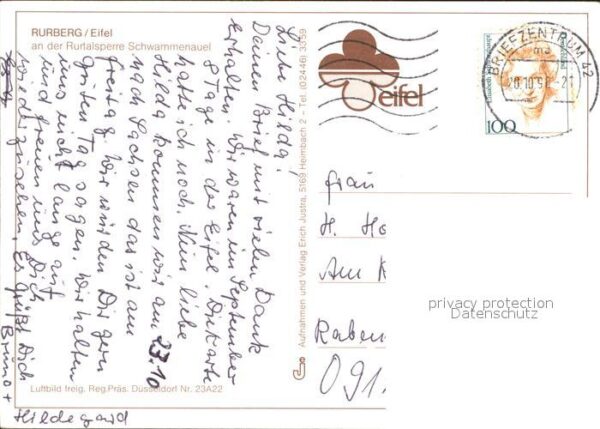 RURBERG / Eifel
an der Rurtalsperre Schwammenauel
Liebe Hilda!
Deinen Brief mit vielen Dank
erhalten. Wir waren im September
8 Tage in der Eifel. Die Karte
hatte ich noch. Nun liebe
Hilda kommen wir am 23.10
nach Sachsen das ist am
Freitag wir würden Dir gern
guten Tag sagen. Wir halten
uns nicht lange auf
und freuen uns Dich
wiederzusehen. Es grüßt Dich
Bruno +
Hildegard
Luftbild freig. Reg.Präs. Düsseldorf Nr. 23A22
Aufnahmen und Verlag Erich Justra, 5169 Heimbach 2 - Tel. (02446) 3059
eifel
BRIEFZENTRUM 42
100
Frau
H. Ho
Am K
Raben
091
privacy protection
Datenschutz